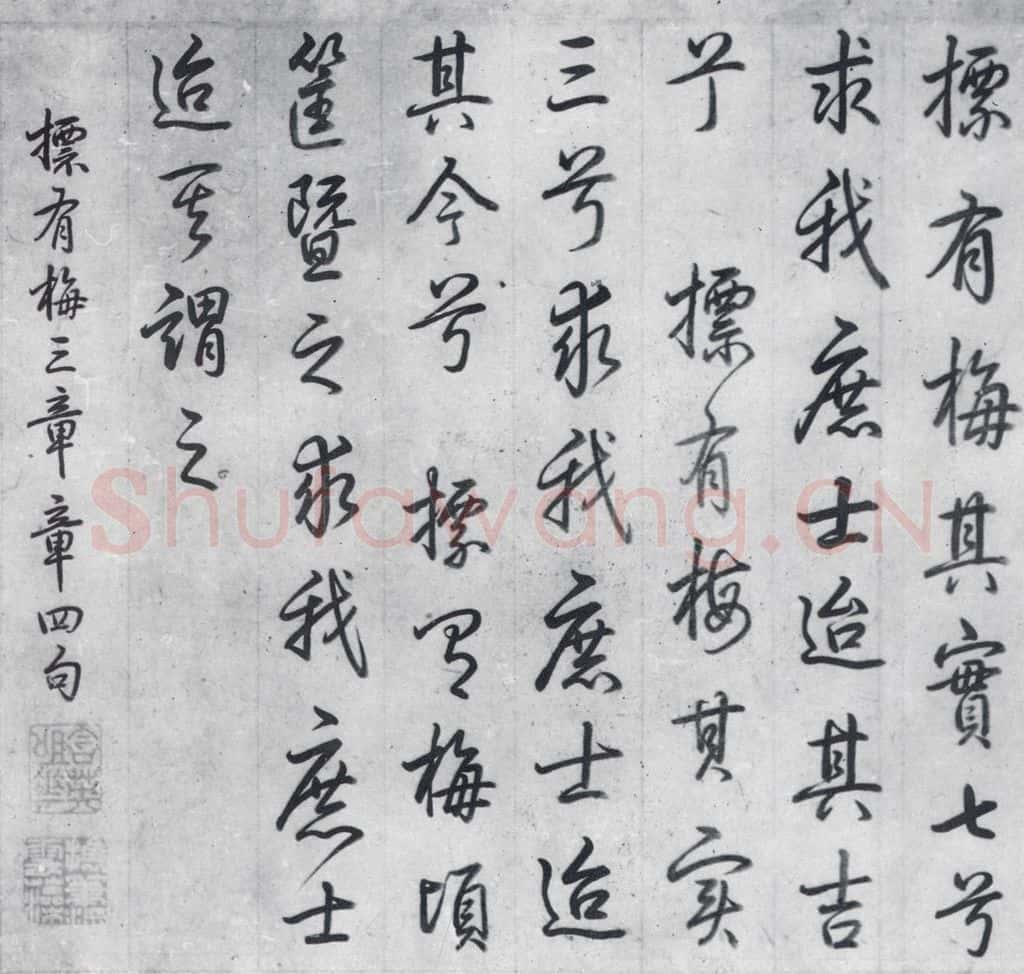 摽有梅其實七兮
求我庶士迨其吉
兮 摽有梅其实
三兮求我庶士迨
其今兮 摽有梅頃
筐塈之求我庶士
迨其謂之
摽有梅三章章四句
Shufawang.CN